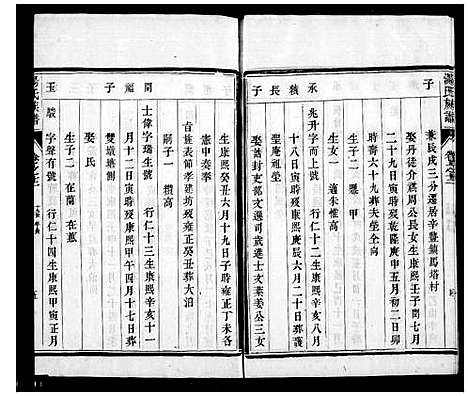 湯氏族譜
子
兼辰戌三分遷居辛豐鎮馬塔村
娶丹徒介嘉周公長女生康熙壬子閏七月
二十九日寅時歿乾隆庚申五月初二日卯
時壽六十九葬夫塋仝向
生子一 璽甲
生女一 適朱惟高
承 兆升字而上號 行仁十二生康熙辛亥八月
十八日寅時歿康熙庚辰六月二十日葬護
長 娶誥封吏部文選司歲進士文葉姜公三女
子
生康熙癸丑六月十九日子時歿雍正丁未各
憲甲奏奉
旨旌表節孝建坊歿雍正癸丑葬大泊
嗣子一 穳高
同 士偉字瑞生號 行仁十三生康熙辛亥十一
月十二日寅時歿康熙甲午四月十七日葬
繼 雙墩塘側
子 娶 氏
生子二 在蘭 在蕙
玉駿 字聲有號 行仁十四生康熙甲寅正月